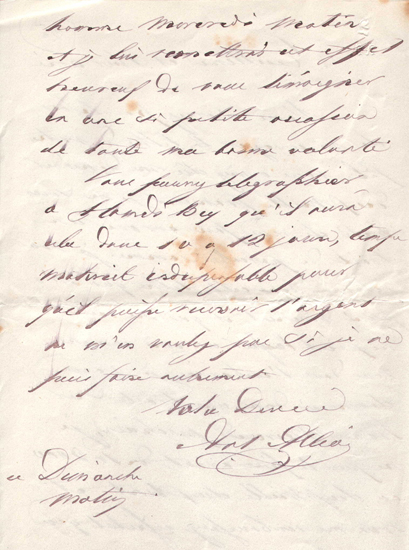 homme Mercredi matin
et je lui remettrai cet effet
heureux de vous témoigner
en une si petite occasion
de toute ma bonne volonté
Vous pouvez télégraphier
à Bey qu'il aura
cela dans 10 à 12 jours, temps
matériel indispensable pour
qu'il puisse recevoir l'argent
ne m'en voulez pas si je ne
puis faire autrement
Votre Dévoué
ce Dimanche
matin